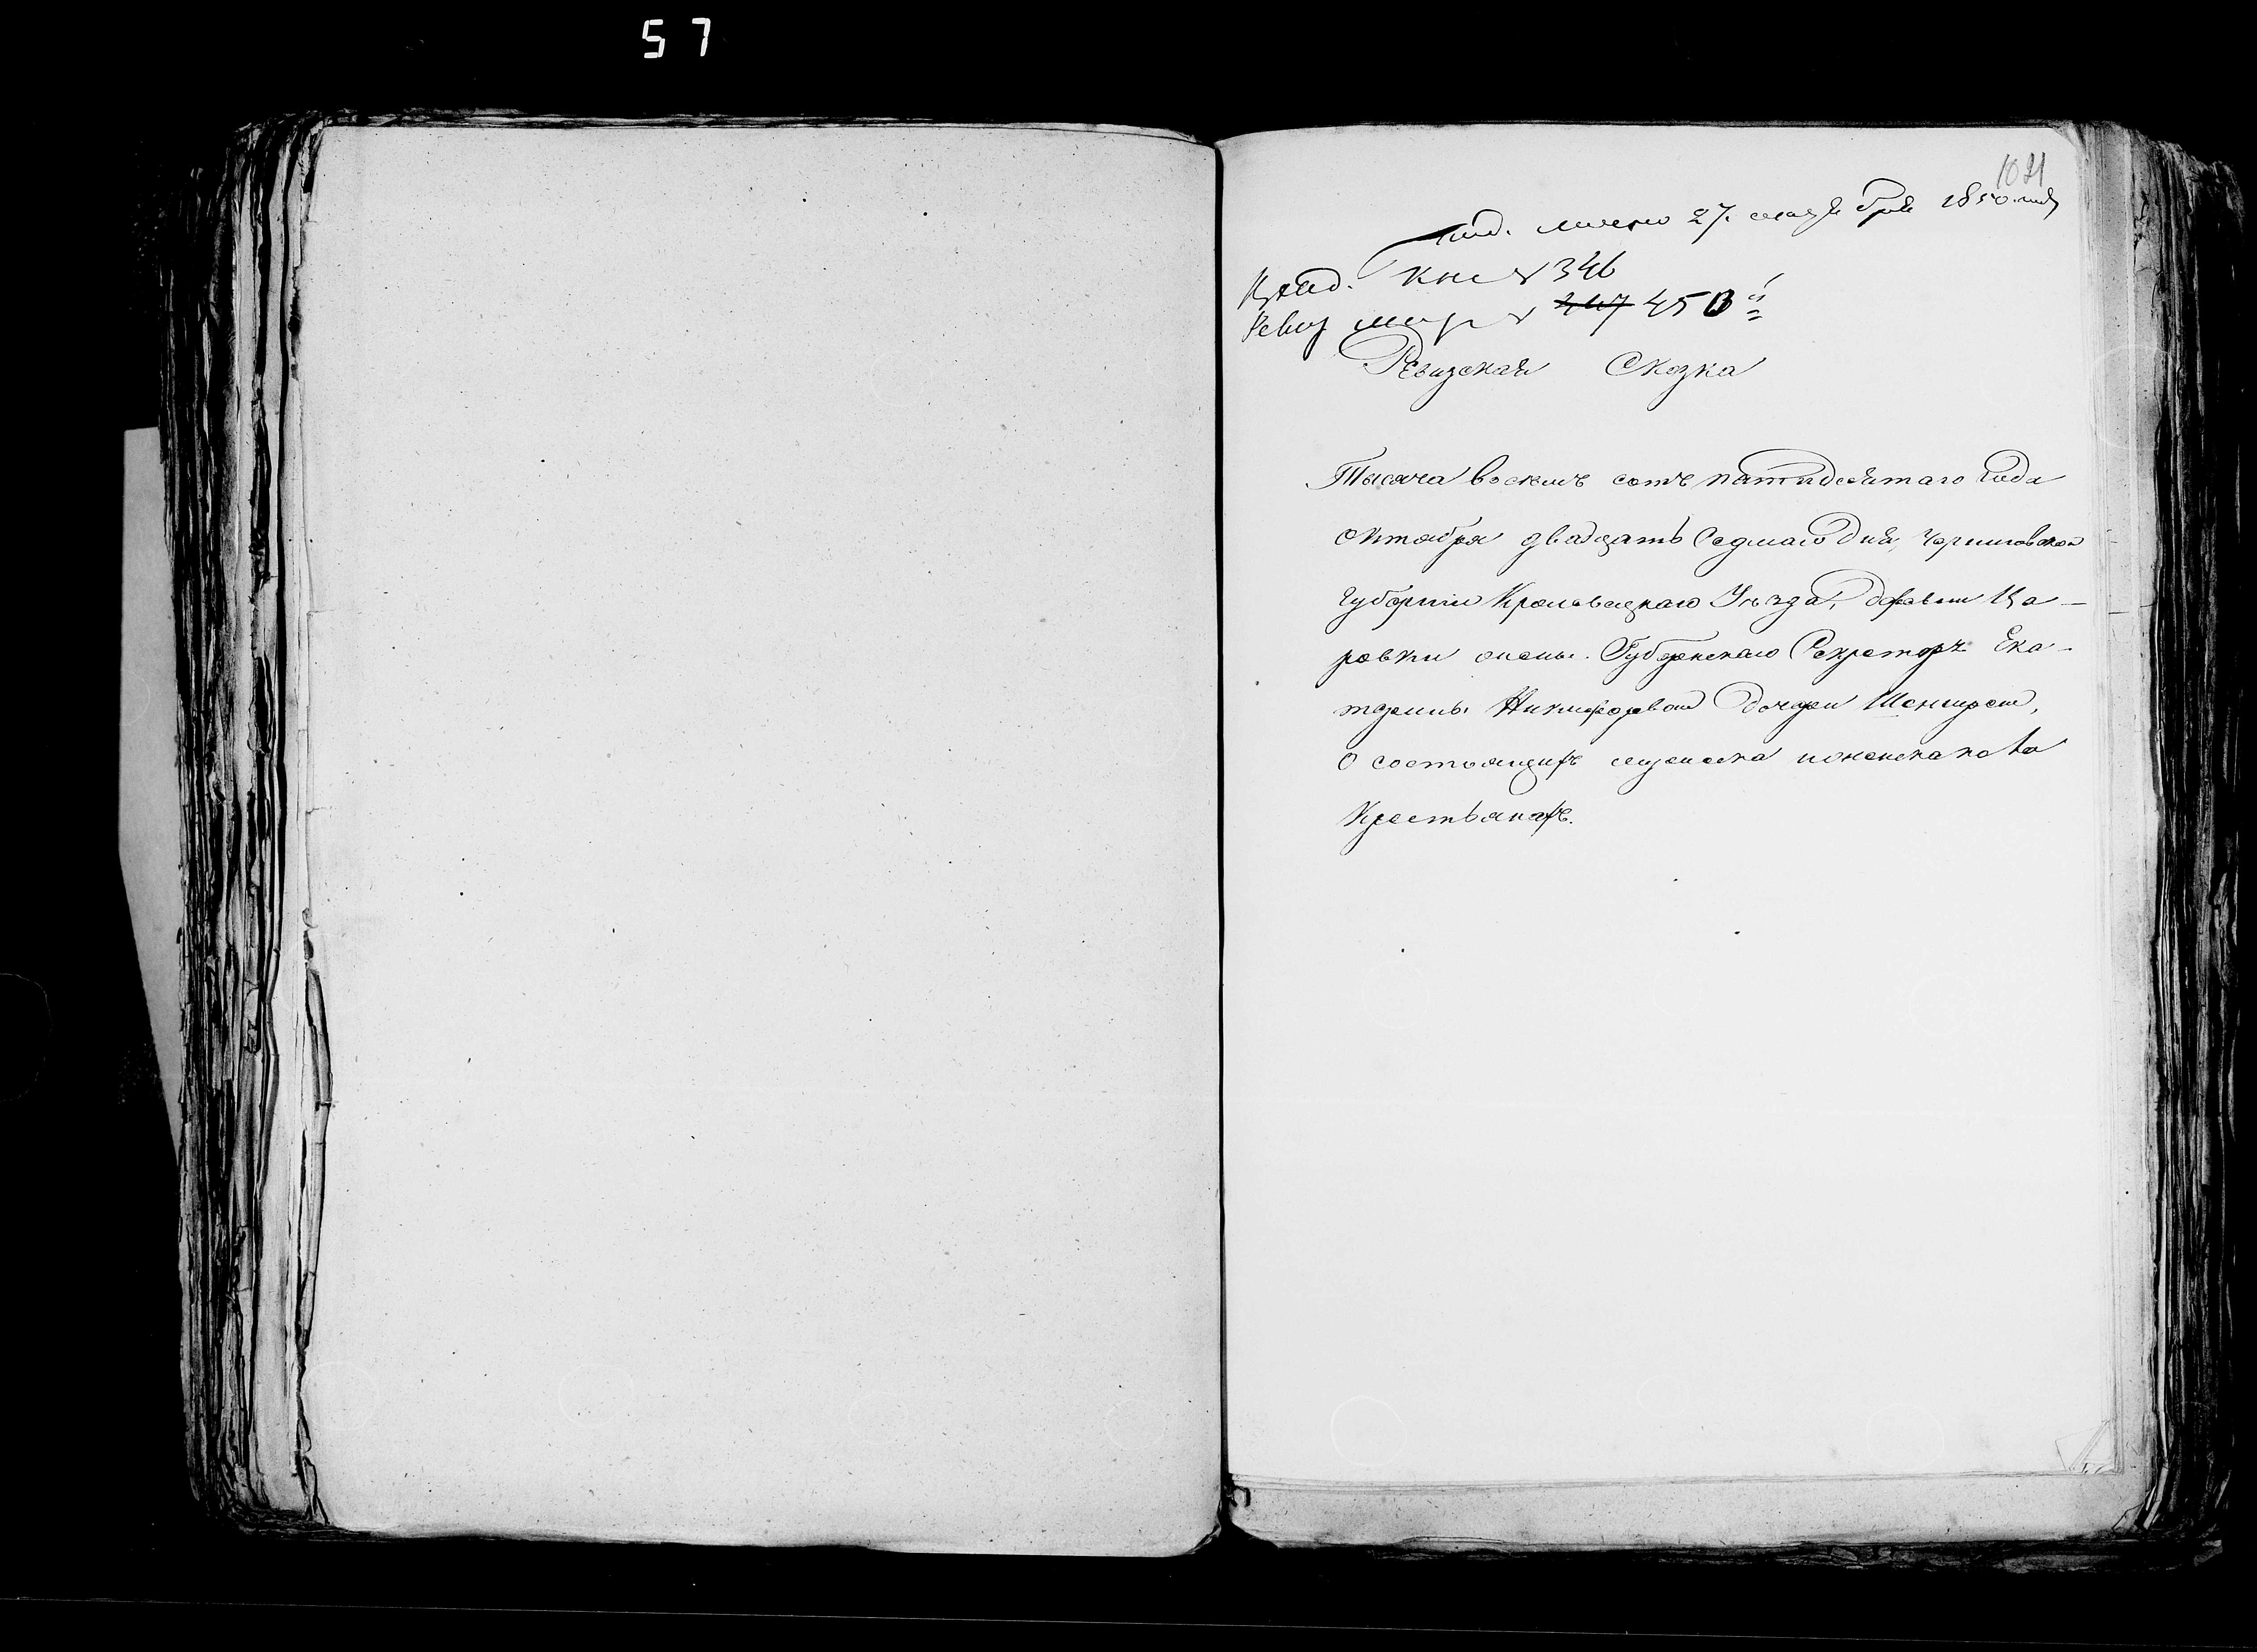 57
1021
под. лично 27. октября 1850 года
кни № 346
Ревиз № 247 450й
Ревизская Сказка
Тысяча восемь сотъ пятидесятаго Года
Октября двадцать Седмаго Дня, Черниговской
Губерніи Кролевецкаго Уезда, деревни Ца-
ровки жены Губернскаго Секретаря Ека-
терины Никифоровой дочери
О состоящихъ мужеска и женска пола
Крестьянахъ.